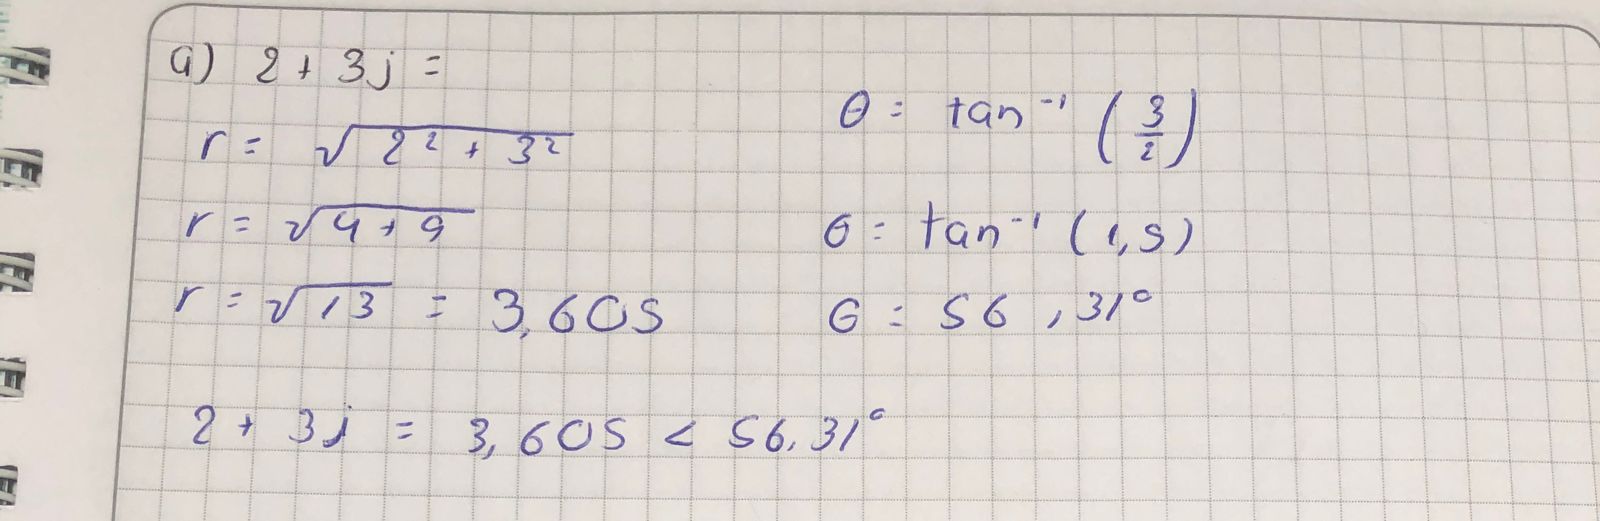 a) 2 + 3j =
r = √2² + 3²
r = √4 + 9
r = √13 = 3,605
θ = tan⁻¹ (3/2)
θ = tan⁻¹ (1,5)
θ = 56,31°
2 + 3j = 3,605 < 56.31°